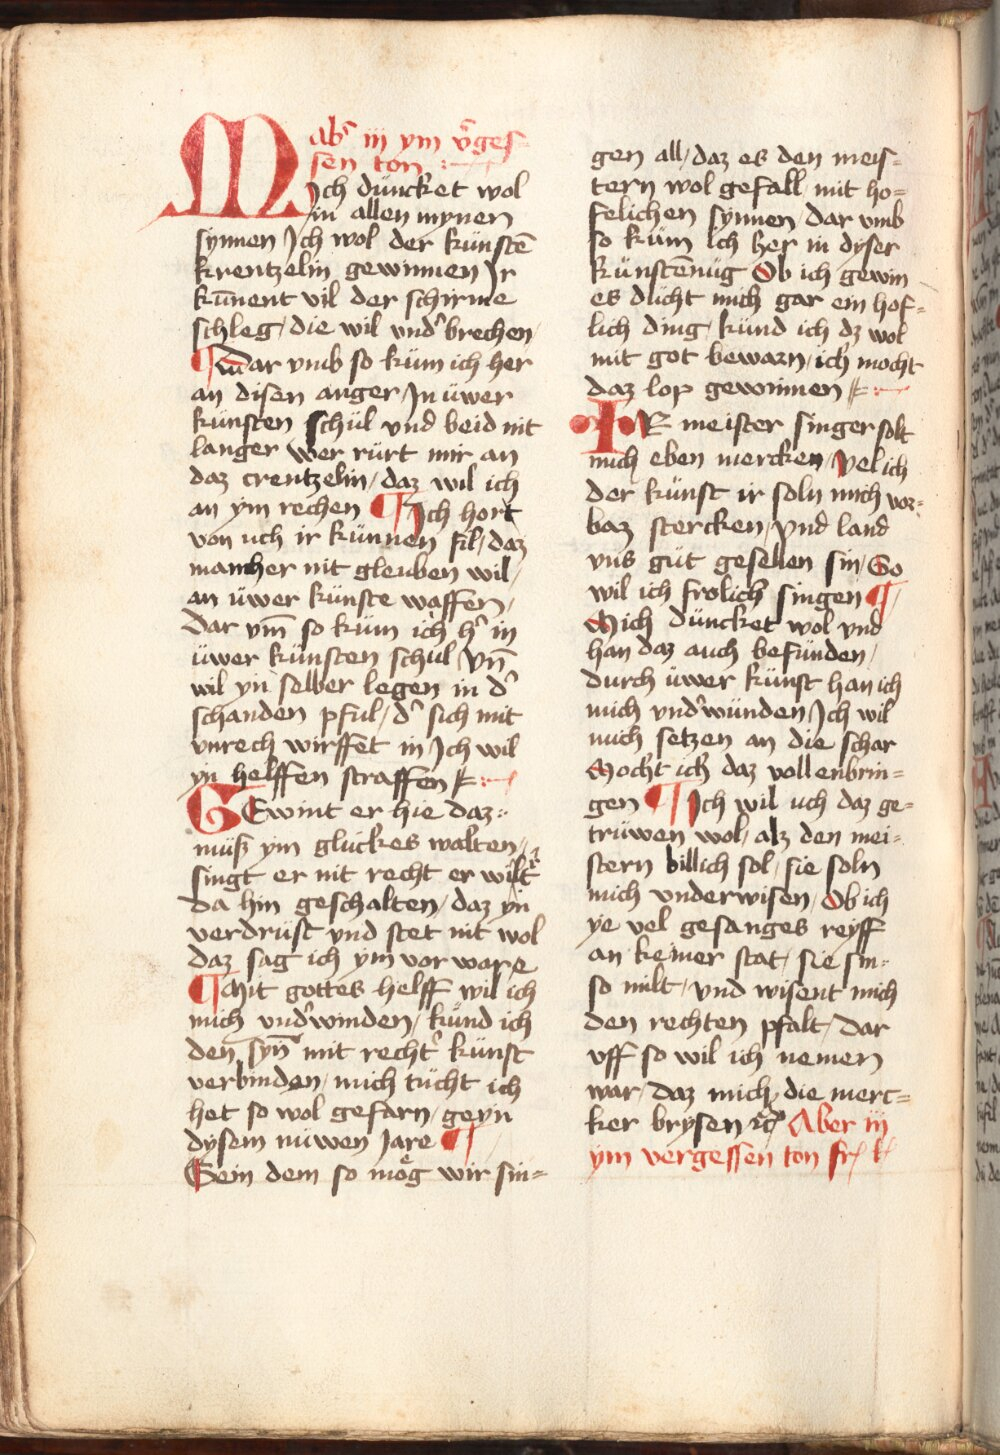 Abͬ iij ym v̾ges
sen ton
Mich duncket wol
in allen mynen
synnen Jch wol der kunstē
krentzelin gewinnen Jr
kūnent vil der schirme
schleg / die wil vnd᾽ brechen /
¶ War vmb so kum ich her
an disen anger / Jn uwer
kunsten schul vnd beid nit
langer wer rurt mir an
daz crentzelin / daz wil ich
an ym rechen ¶ Jch hort
von uch ir kunnen fil / daz
mancher nit gleuben wil /
an uwer kunste waffen /
Dar vm̄ so kum ich h᾽ in
uwer kunsten schul Vn̄
wil yn selber legen in d᾽
schanden pful / d᾽ sich mit
vnrech wirffet in / Jch wil
yn helffen straffen
GEwint er hie daz
muß ym gluckes walten /
singt er nit recht er wirt
da hin geschalten / daz yn
verdrust vnd stet nit wol
daz sag ich ym vor ware
¶ Mit gottes helff wil ich
mich vnd᾽winden / kund ich
den syn̄ mit recht᾽ kunst
verbinden / mich tucht ich
het so wol gefarn / geyn
dysem nuwen Jare ¶
Gein dem so mog wir sin=
gen all / daz es den meis=
tern wol gefall / mit ho=
felichen synnen / dar vmb
so kum ich her in dyser
kunstēnug Ob ich gewin
es ducht mich gar ein hof=
lich ding / kund ich dz wol
mit got bewarn / ich mocht
daz lop gewinnen
IR meister singer solt
mich eben mercken / Vel ich
der kunst ir soln mich vor=
baz stercken / Vnd land
vns gut gesellen sin / So
wil ich frolich singen ¶
Mich duncket wol vnd
han daz auch befunden /
durch uwer kunst han ich
mich vnd᾽wunden / Jch wil
mich setzen an die schar
Mocht ich daz vollenbrin=
gen ¶ Jch wil uch daz ge=
truwen wol / alz den mei=
stern billich sol / sie soln
mich vnderwisen / Ob ich
ye vel gesanges reyff
an keiner stat / sie sin
so milt / vnd wisent mich
den rechten pfalt / Dar
vff so wil ich nemen
war / daz mich die merc=
ker brysen Aber iij
ym vergessen ton